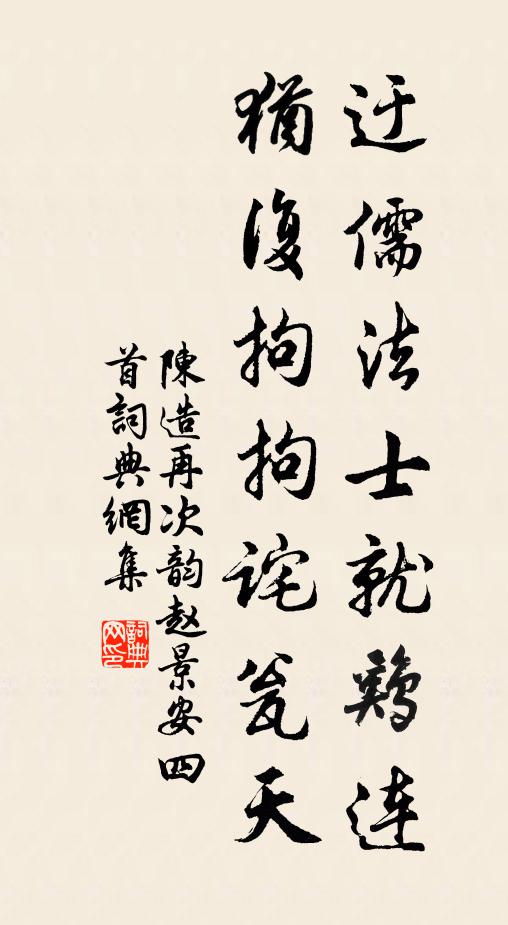 迂儒法士就鷄連
猶復拘拘詫瓮天
陳造再次韵赵景安四
首詞典網集
詞典网印